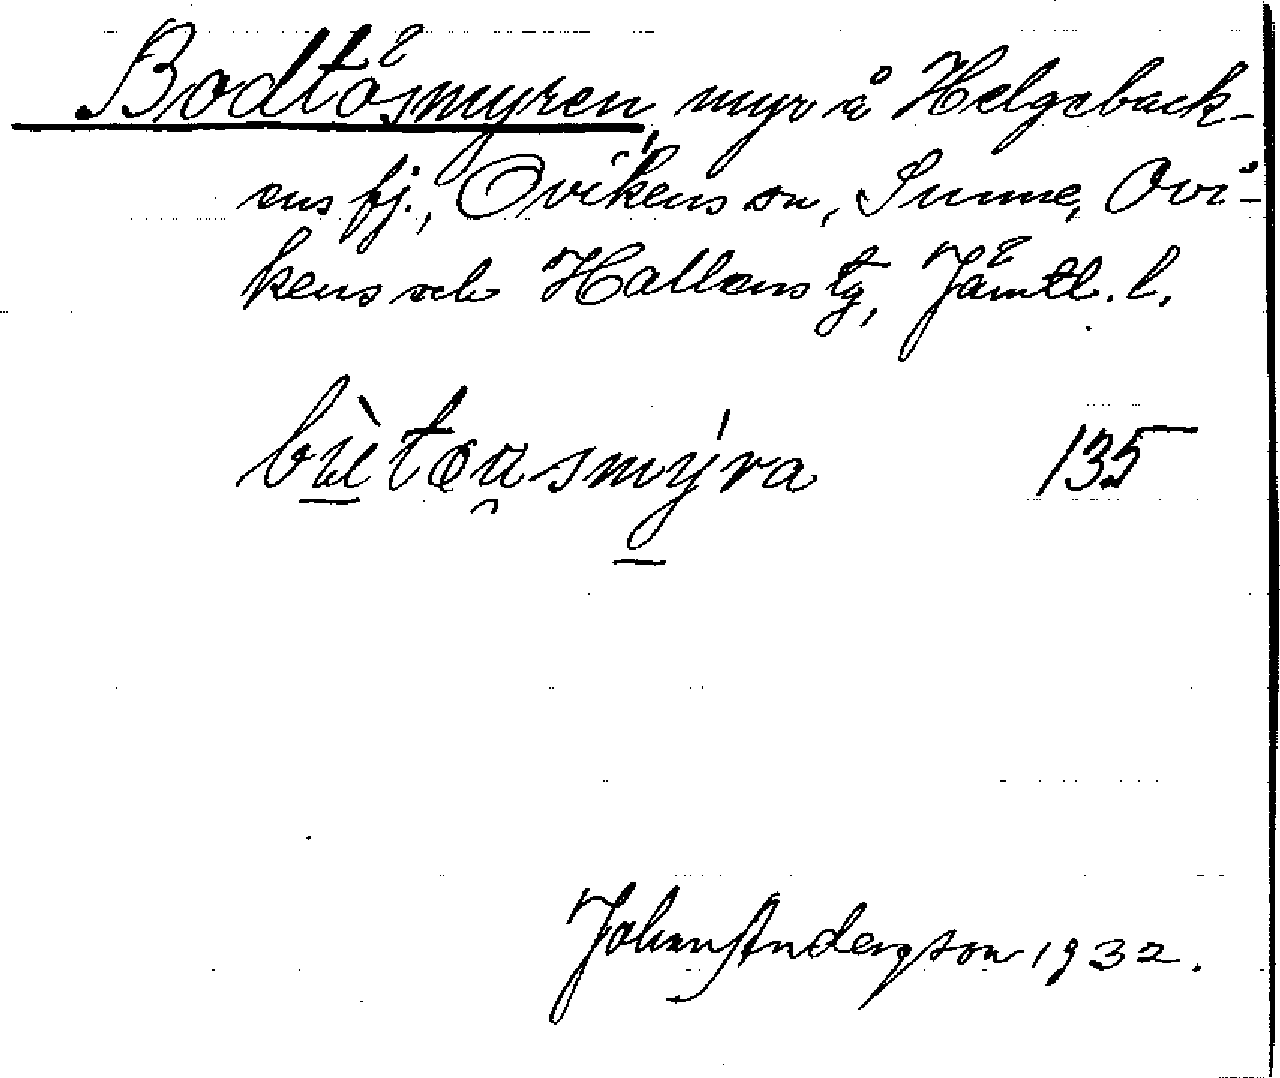 Bodtåsmyren, myr å Helgeback-
ens fj., Ovikens sn, Sunne, Ovi-
kens och Hallens tg, Jämtl. l.
135
Johan Anderson 1932.